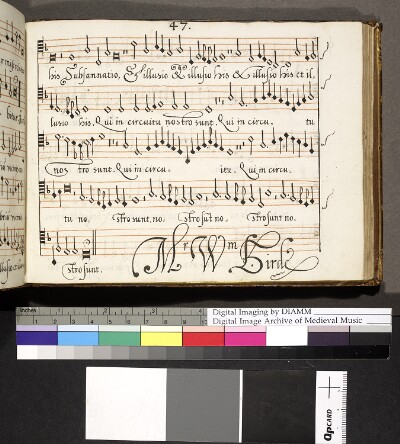 47.
his Subsannatio, & illusio & illusio his & illusio his et il,
lusio his. Qui in circuitu nostro sunt. Qui in circu, tu
nos tro sunt. Qui in circu. itu. Qui in circu.
tu no. stro sunt. no. stro sūt no. stro sunt no.
stro sunt.
Mr Wm Bird
inches 1 2 3
Digital Imaging by DIAMM
Digital Image Archive of Medieval Music
QPCARD